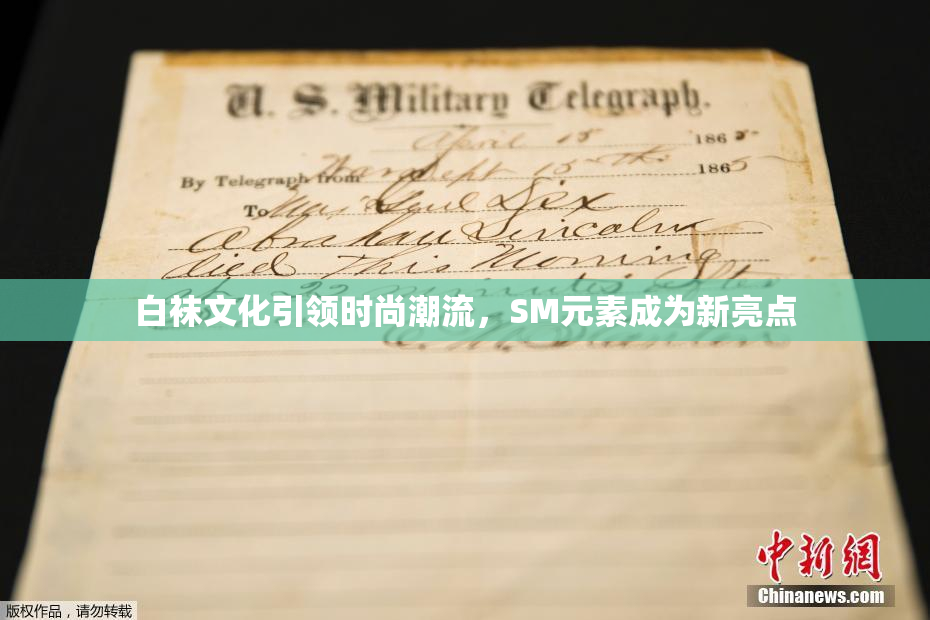 U. S. Military Telegraph.
April 15 1865
By Telegraph from War Dept 15th 1865
To Maj Genl Dix
Abraham Lincoln
died This Morning
22 minutes after
白袜文化引领时尚潮流，SM元素成为新亮点
中新网
Chinanews.com
版权作品，请勿转载